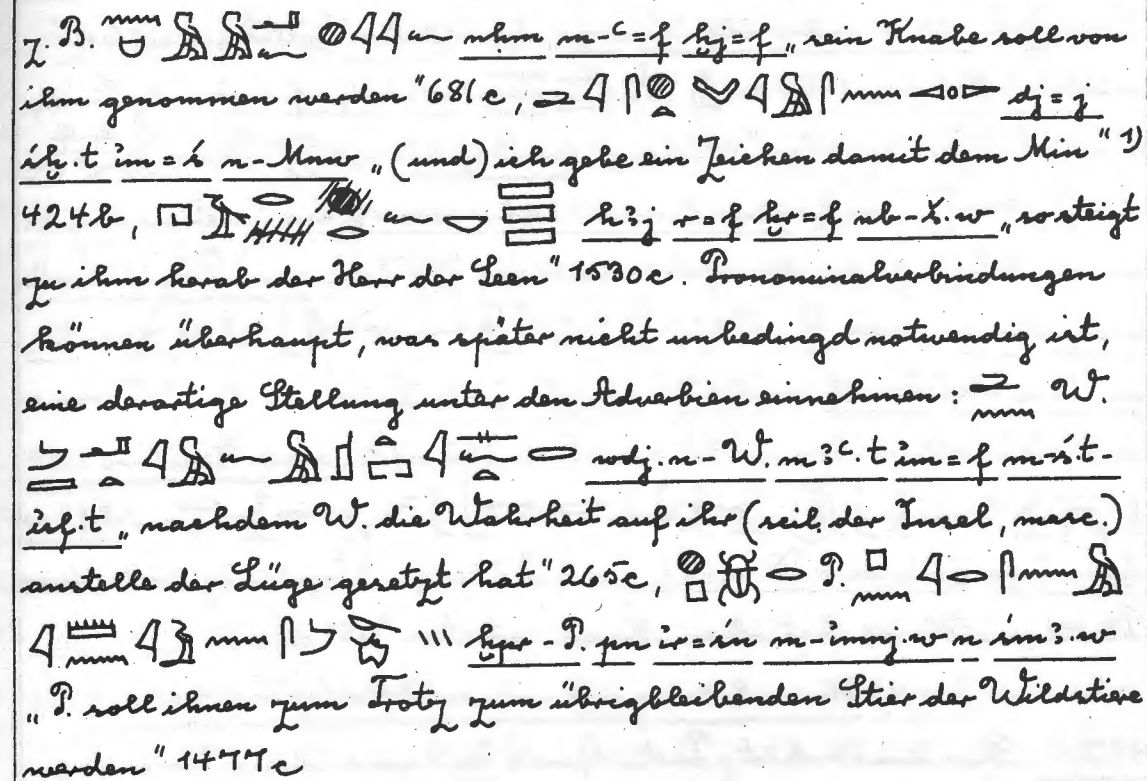 z. B. nḥm m-ꜥ=f ẖj=f „sein Knabe soll von
ihm genommen werden" 681c, dj=j
iḫ.t im=ś n-Mnw „(und) ich gebe ein Zeichen damit dem Min" 1)
424b, hꜣj r=f ḫr=f nb-š.w „so steigt
zu ihm herab der Herr der Seen" 1530c. Pronominalverbindungen
können überhaupt, was später nicht unbedingd notwendig ist,
eine derartige Stellung unter den Adverbien einnehmen: W.
wdj.n-W. mꜣꜥ.t im=f m-ś.t-
isf.t „nachdem W. die Wahrheit auf ihr (scil. der Insel, masc.)
anstelle der Lüge gesetzt hat" 265c, P.
ḫpr-P. pn ir=śn m-imnj.w n śmꜣ.w
„P. soll ihnen zum Trotz zum übrigbleibenden Stier der Wildstiere
werden" 1477c